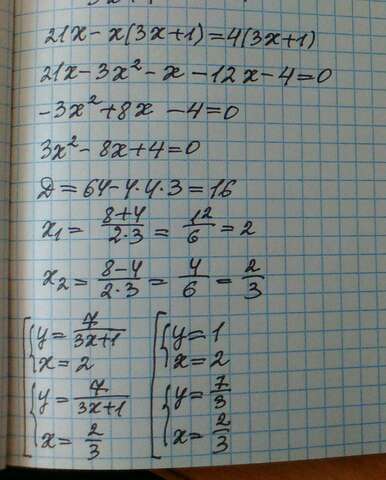 21x - x(3x+1) = 4(3x+1)
21x - 3x² - x - 12x - 4 = 0
-3x² + 8x - 4 = 0
3x² - 8x + 4 = 0
D = 64 - 4·4·3 = 16
x₁ = (8+4)/(2·3) = 12/6 = 2
x₂ = (8-4)/(2·3) = 4/6 = 2/3
[ { y = 7/(3x+1) [ { y = 1
x = 2 x = 2
{ y = 7/(3x+1) { y = 7/3
x = 2/3 x = 2/3